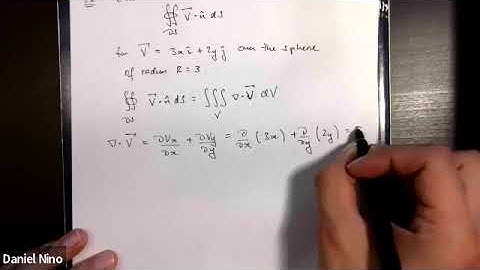 ∯_∂S V⃗ · û dS
for V⃗ = 3x î + 2y ĵ over the sphere
of radius R = 3
∯_∂S V⃗ · û dS = ∭_V ∇ · V⃗ dV
∇ · V⃗ = ∂Vx/∂x + ∂Vy/∂y = ∂/∂x (3x) + ∂/∂y (2y) =
Daniel Nino